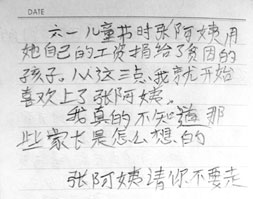 DATE
六一儿童节时张阿姨用
她自己的工资捐给了贫困的
孩子。从这三点,我就开始
喜欢上了张阿姨。
我真的不知道那
些家长是怎么想的
张阿姨请你不要走